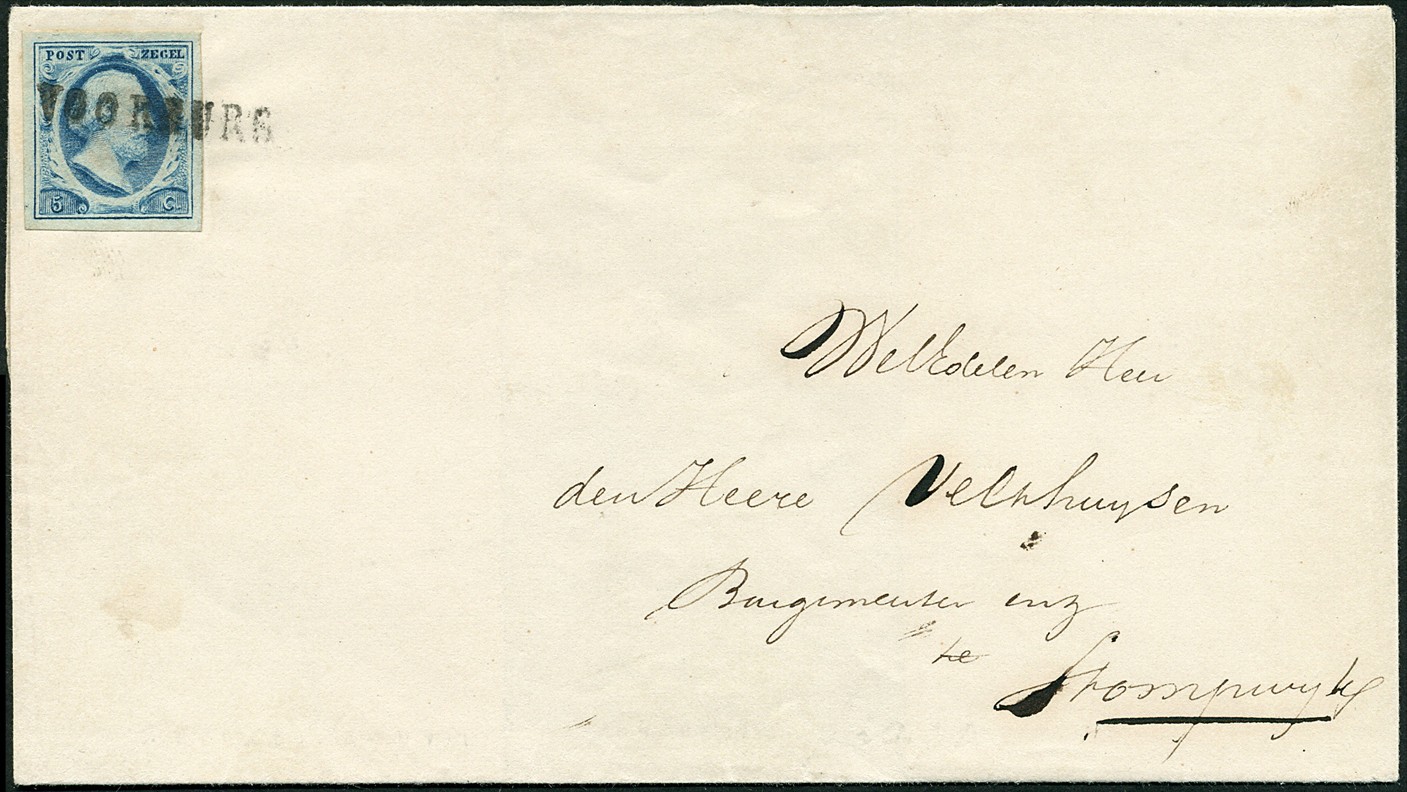 POST ZEGEL
VOORBURG
5 C.
WelEdelen Heer
den Heere Velthuysen
Burgemeester enz
te
Stompwyk